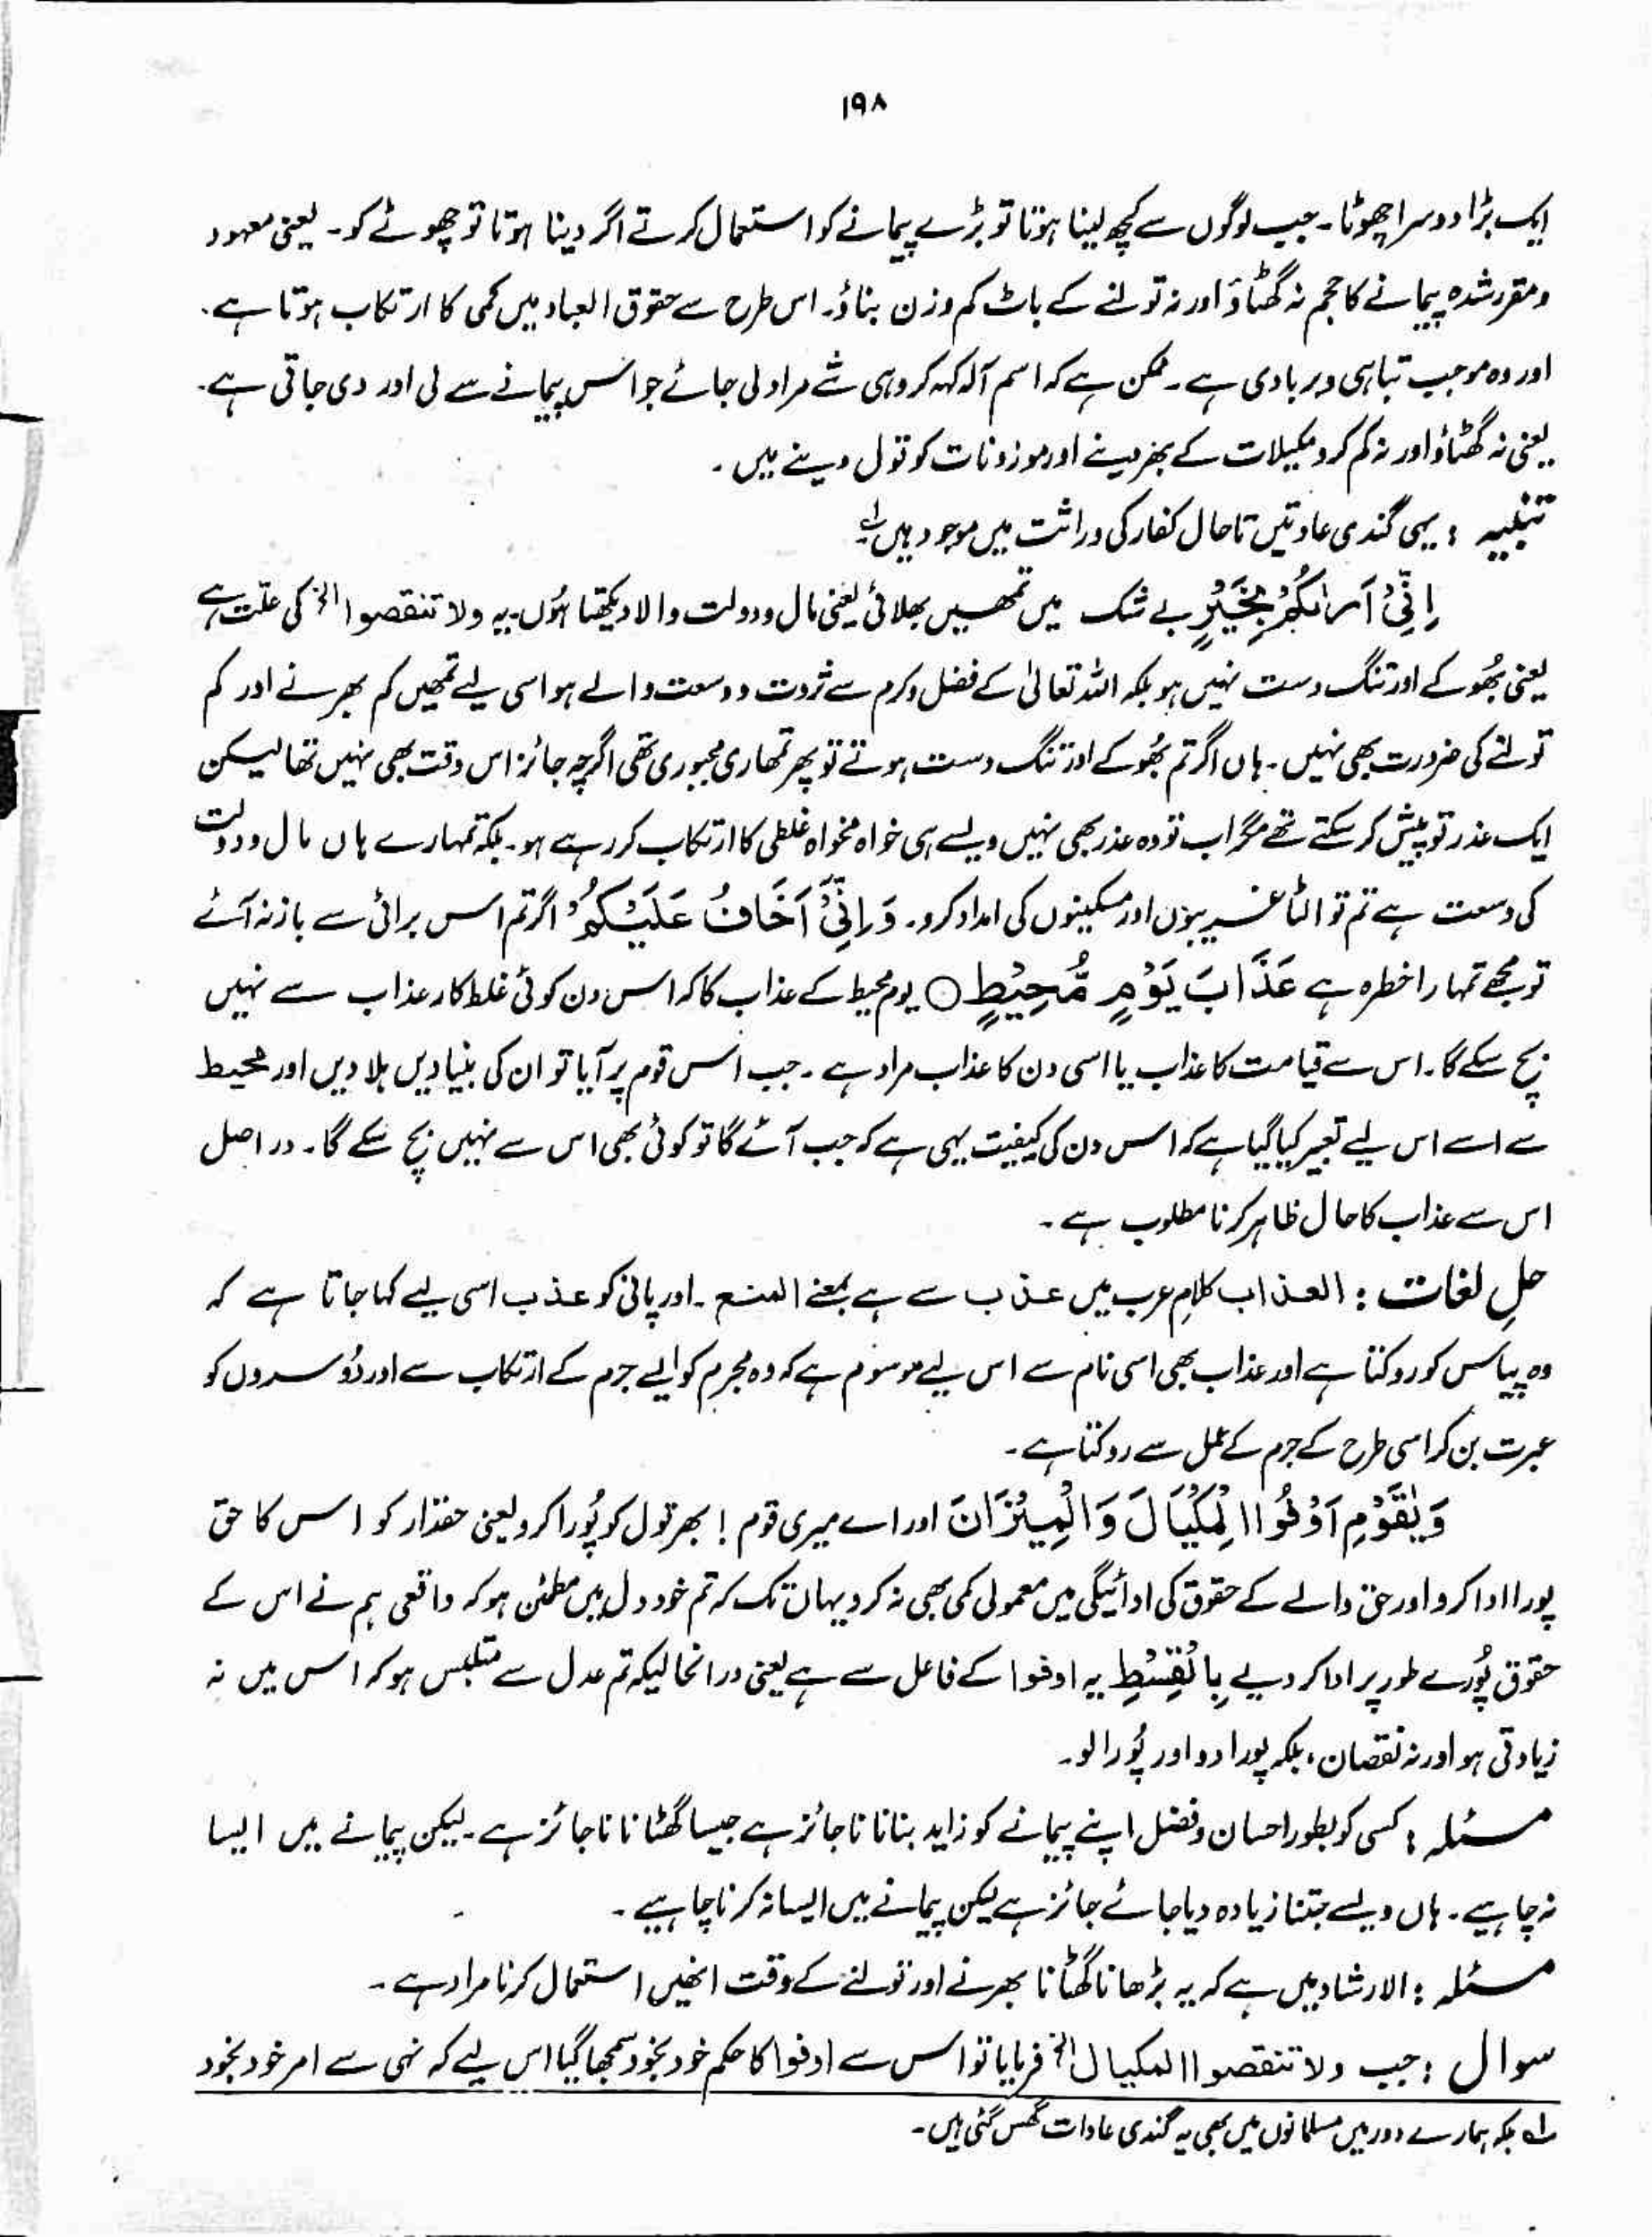 ۱۹۸
ایک بڑا دوسرا چھوٹا۔ جب لوگوں سے کچھ لینا ہوتا تو بڑے پیمانے کو استعمال کرتے اگر دینا ہوتا تو چھوٹے کو۔ یعنی معہود
و مقرر شدہ پیمانے کا حجم نہ گھٹاؤ اور نہ تولنے کے باٹ کم وزن بناؤ۔ اس طرح سے حقوق العباد میں کمی کا ارتکاب ہوتا ہے۔
اور وہ موجب تباہی و بربادی ہے۔ ممکن ہے کہ اسم آلہ کہہ کر وہی شے مراد لی جائے جو اس پیمانے سے لی اور دی جاتی ہے۔
یعنی نہ گھٹاؤ اور نہ کم کرو مکیلات کے بھر دینے اور موزونات کو تول دینے میں۔
تنبیہ : یہی گندی عادتیں تاحال کفار کی وراثت میں موجود ہیں لہ
اِنِّیْۤ اَرٰىكُمْ بِخَیْرٍ بے شک میں تمھیں بھلائی یعنی مال و دولت والا دیکھتا ہُوں۔ یہ ولا تنقصوا الخ کی علّت ہے
یعنی بھُوکے اور تنگ دست نہیں ہو بلکہ اللہ تعالیٰ کے فضل و کرم سے ثروت و وسعت والے ہو اسی لیے تمھیں کم بھرنے اور کم
تولنے کی ضرورت بھی نہیں۔ ہاں اگر تم بھُوکے اور تنگ دست ہوتے تو پھر تمھاری مجبوری تھی اگرچہ جائز اس وقت بھی نہیں تھا لیکن
ایک عذر تو پیش کر سکتے تھے مگر اب تو وہ عذر بھی نہیں ویسے ہی خواہ مخواہ غلطی کا ارتکاب کر رہے ہو۔ بلکہ تمہارے ہاں مال و دولت
کی وسعت ہے تم تو الٹا غریبوں اور مسکینوں کی امداد کرو۔ وَ اِنِّیْۤ اَخَافُ عَلَیْكُمْ اگر تم اس برائی سے باز نہ آئے
تو مجھے تمہارا خطرہ ہے عَذَابَ یَوْمٍ مُّحِیْطٍ ○ یوم محیط کے عذاب کا کہ اس دن کوئی غلط کار عذاب سے نہیں
بچ سکے گا۔ اس سے قیامت کا عذاب یا اسی دن کا عذاب مراد ہے۔ جب اس قوم پر آیا تو ان کی بنیادیں ہلا دیں اور محیط
سے اسے اس لیے تعبیر کیا گیا ہے کہ اس دن کی کیفیت یہی ہے کہ جب آئے گا تو کوئی بھی اس سے نہیں بچ سکے گا۔ در اصل
اس سے عذاب کا حال ظاہر کرنا مطلوب ہے۔
حلِ لغات : العذاب کلامِ عرب میں عذب سے ہے بمعنے المنع۔ اور پانی کو عذب اسی لیے کہا جاتا ہے کہ
وہ پیاس کو روکتا ہے اور عذاب بھی اسی نام سے اس لیے موسوم ہے کہ وہ مجرم کو ایسے جرم کے ارتکاب سے اور دُوسروں کو
عبرت بن کر اسی طرح کے جرم کے عمل سے روکتا ہے۔
وَ یٰقَوْمِ اَوْفُوا الْمِكْیَالَ وَ الْمِیْزَانَ اور اے میری قوم ! بھر تول کو پُورا کرو یعنی حقدار کو اس کا حق
پورا ادا کرو اور حق والے کے حقوق کی ادائیگی میں معمولی کمی بھی نہ کرو یہاں تک کہ تم خود دل میں مطمئن ہو کہ واقعی ہم نے اس کے
حقوق پُورے طور پر ادا کر دیے بِالْقِسْطِ یہ اوفوا کے فاعل سے ہے یعنی درانحالیکہ تم عدل سے متلبس ہو کہ اس میں نہ
زیادتی ہو اور نہ نقصان، بلکہ پورا دو اور پُورا لو۔
مسئلہ : کسی کو بطور احسان و فضل اپنے پیمانے کو زاید بنانا ناجائز ہے جیسا گھٹانا ناجائز ہے۔ لیکن پیمانے میں ایسا
نہ چاہیے۔ ہاں ویسے جتنا زیادہ دیا جائے جائز ہے لیکن پیمانے میں ایسا نہ کرنا چاہیے۔
مسئلہ : الارشاد میں ہے کہ یہ بڑھانا گھٹانا بھرنے اور تولنے کے وقت انھیں استعمال کرنا مراد ہے۔
سوال : جب ولا تنقصوا المکیال الخ فرمایا تو اس سے اوفوا کا حکم خود بخود سمجھا گیا اس لیے کہ نہی سے امر خود بخود
لہ بلکہ ہمارے دور میں مسلمانوں میں بھی یہ گندی عادات گھس گئی ہیں۔